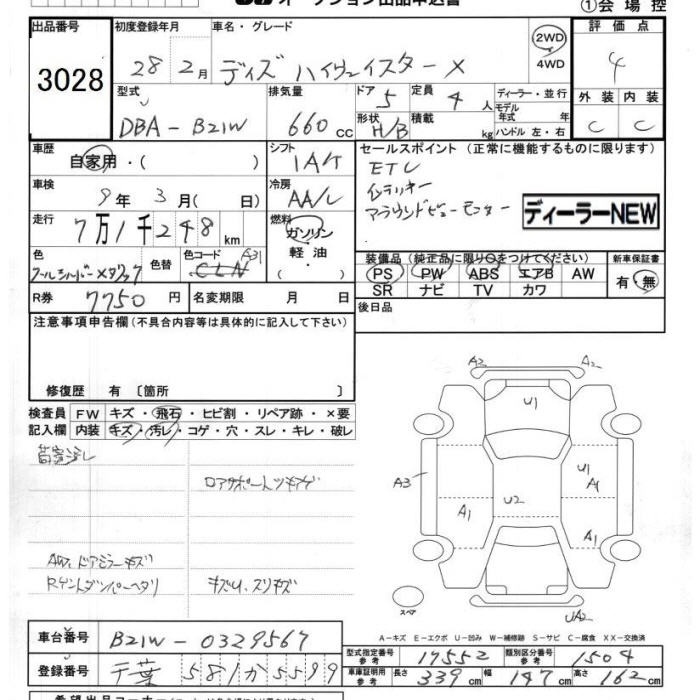 ①会場控
出品番号 初度登録年月 車名・グレード 2WD 4WD 評価点
3028
28年 2月 デイズ ハイウェイスターX 4
型式 排気量 ドア 定員 ディーラー・並行
DBA-B21W 660cc 5 4人 モデル年式 年
形状 積載 外装 内装
H/B kg ハンドル 左・右 C C
車歴 シフト セールスポイント (正常に機能するものに限ります)
自家用・( ) IA/T ETC
車検 冷房 インテリキー
9年 3月 ( 日) AA/C アラウンドビューモニター
ディーラーNEW
走行 7万1千248km 燃料 ガソリン 軽油
色 色替 色コード 装備品 (純正品に限り○をつけてください) 新車保証書
CLN A31
PS PW ABS エアB AW 有・無
SR ナビ TV カワ
R券 7750円 名変期限 月 日 後日品
注意事項申告欄 (不具合内容等は具体的に記入して下さい)
修復歴 有 〔箇所 〕
検査員 FW キズ・飛石・ヒビ割・リペア跡・×要
記入欄 内装 キズ・汚レ・コゲ・穴・スレ・キレ・破レ
ロアサポートツキアゲ
AW、ドアミラーキズ
キズU、スリキズ
A3 A2
U1
A3 U1 A1
U2
A1 A1
スペア UA2
A-キズ E-エクボ U-凹み W-補修跡 S-サビ C-腐食 XX-交換済
車台番号 B21W-0329567
型式指定番号 参考 17552 類別区分番号 参考 1504
登録番号 千葉 581 か 5599
車庫証明用 参考 長さ 339cm 幅 147cm 高さ 162cm